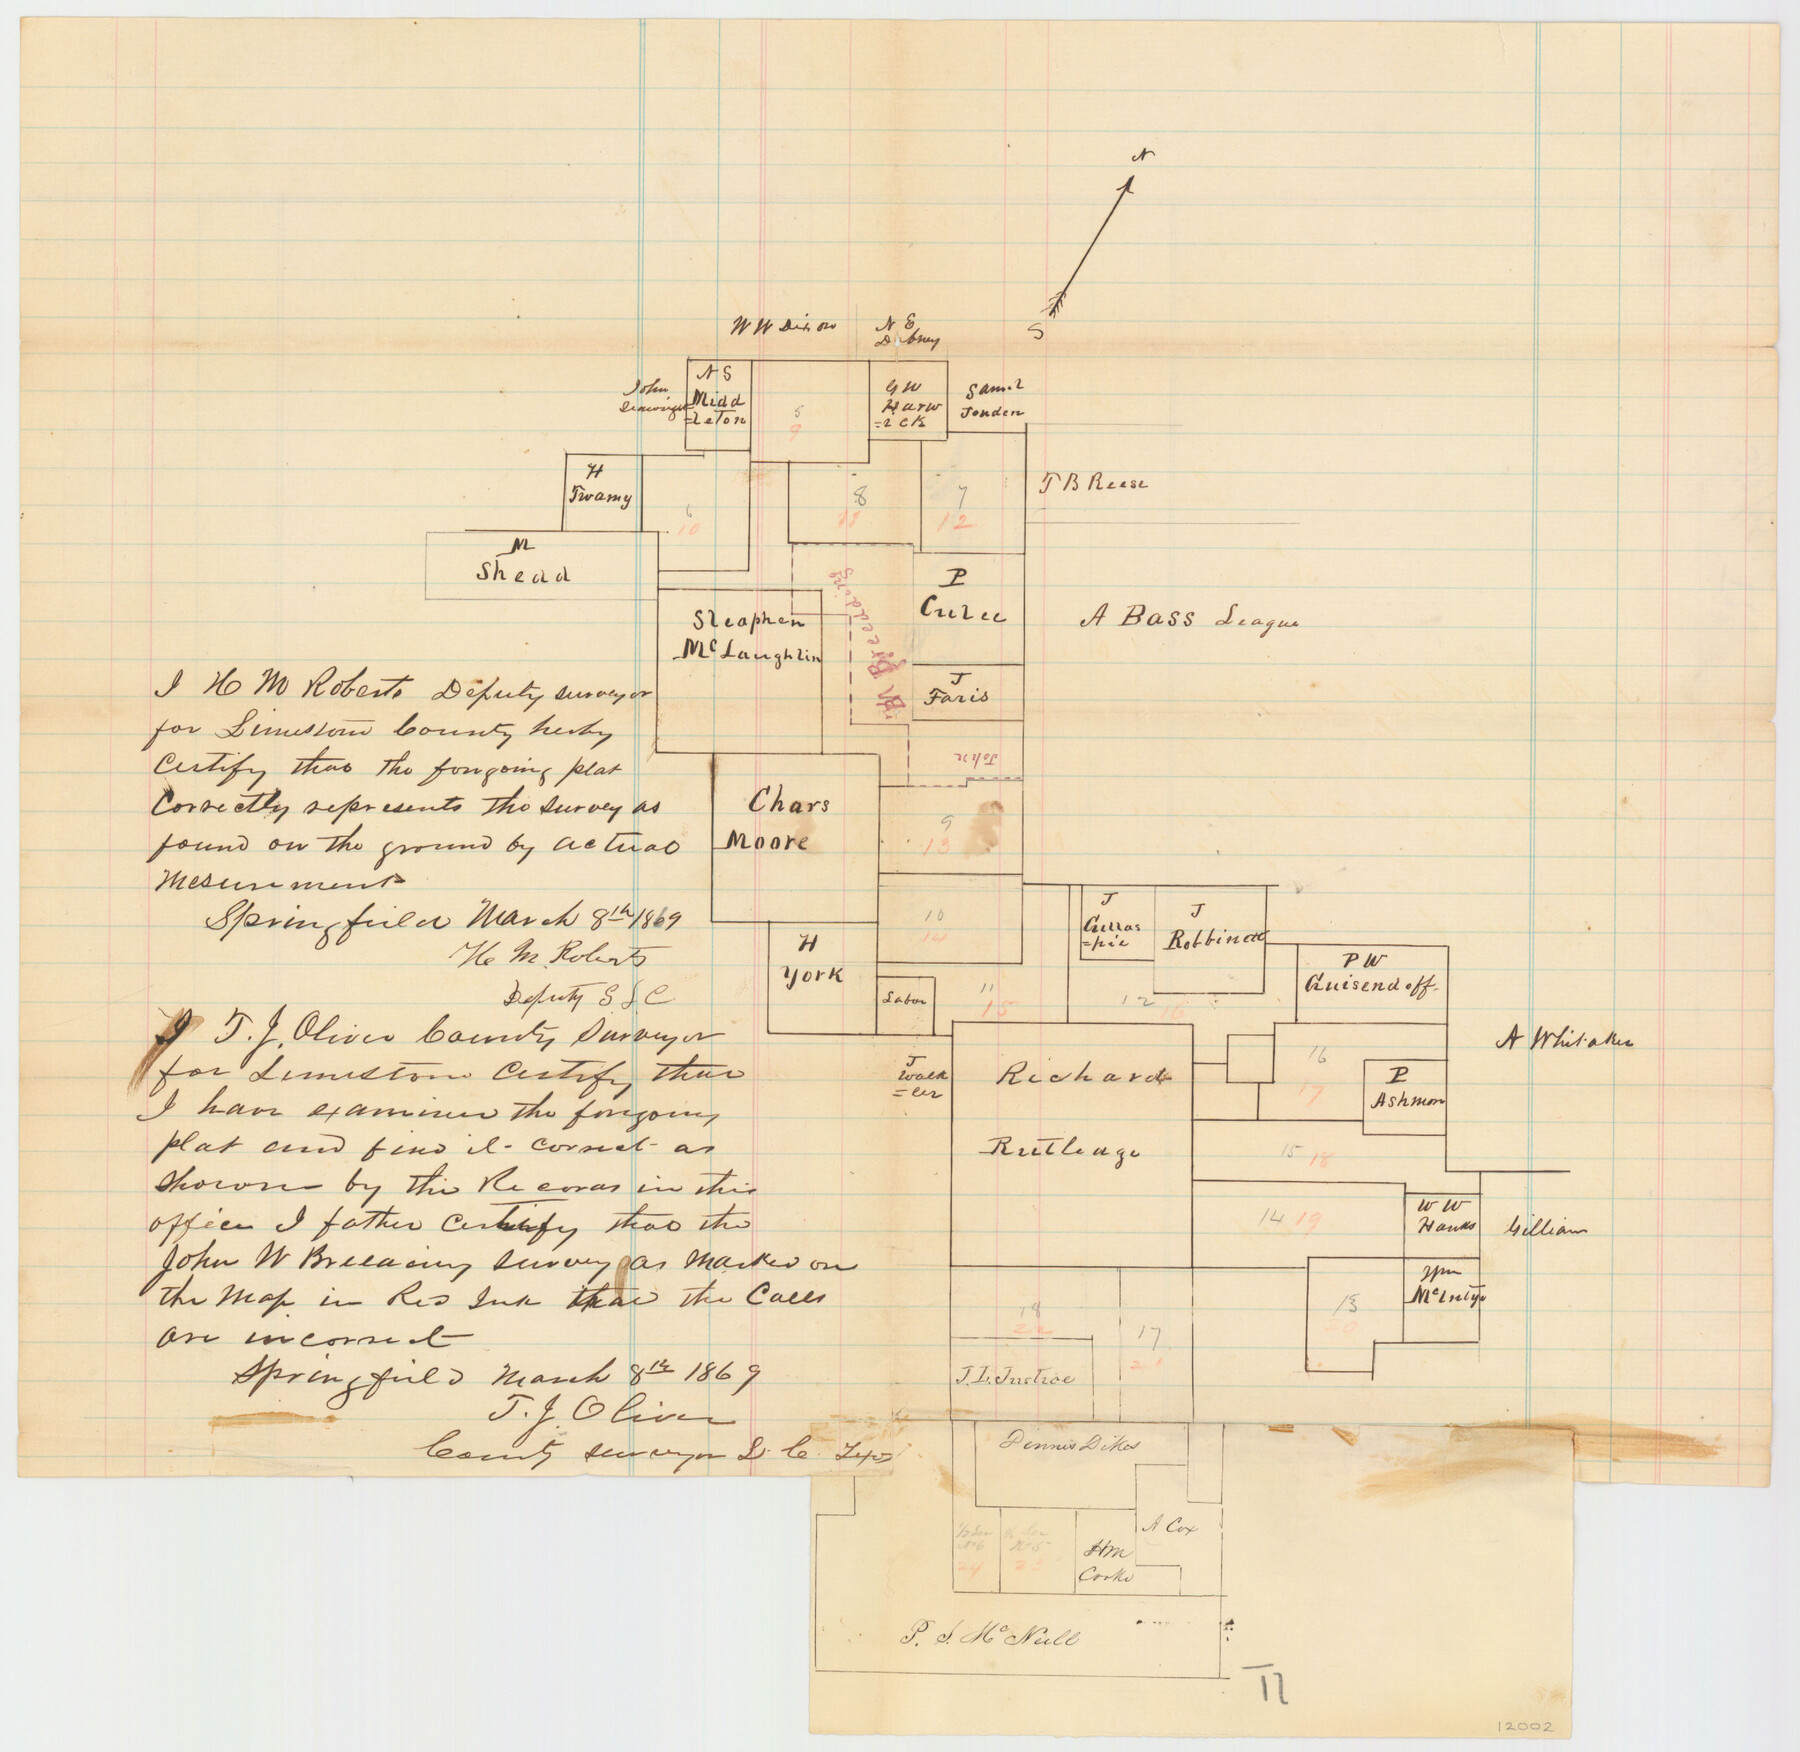 N
S
W W Dixon
N E
Dabney
John
N S
Midd
=leton
5
9
G W
Harw
=ick
Sam.l
Jonden
H
Twamy
6
10
8
11
7
12
T B Reese
M
Shead
P
Culee
A Bass League
Steaphen
McLaughlin
J W Breeading
J
Faris
John
Chars
Moore
9
13
10
14
H
York
Labor
11
15
J
Cullas
=pie
J
Robbinett
12
16
P W
Guisendoff
A Whitaker
J
Walk
=er
Richard
Rutleage
16
17
P
Ashmon
15 18
14 19
W W
Hanks
Gilliam
Wm
McIntyr
13
20
18
22
17
21
J. L. Justice
I H M Roberts Deputy surveyor
for Limestone County herby
Certify that the forgoing plat
Correctly represents the survey as
found on the ground by actual
Mesurement
Springfield March 8th 1869
H. M. Roberts
Deputy S L C
I T. J. Oliver County Surveyor
for Limestone Certify that
I have examined the forgoing
plat and find it correct as
shown by the Records in this
office I father Certify that the
John W Breeacing survey as Marked on
the Map in Red Ink that the Calls
are incorrect
Springfield March 8th 1869
T. J. Oliver
County surveyor L. C. Txs
Dennis Dikes
A Cox
24
23
H M
Cooke
P. S. McNull
12002